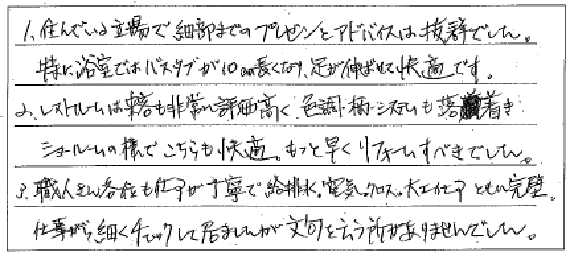 1. 住んでいる立場で細部までのプレゼンとアドバイスは抜群でした。
特に浴室ではバスタブが10cm長くなり、足が伸ばせて快適です。
2. レストルームは来客も非常に評価高く、色調・柄・システムも落着き
ショールームの様でこちらも快適。もっと早くリフォームすべきでした。
3. 職人さん各位も仕事が丁寧で給排水、電気、クロス、大工仕事ともに完璧。
仕事がら細くチェックして居ましたが文句を云う所がありませんでした。